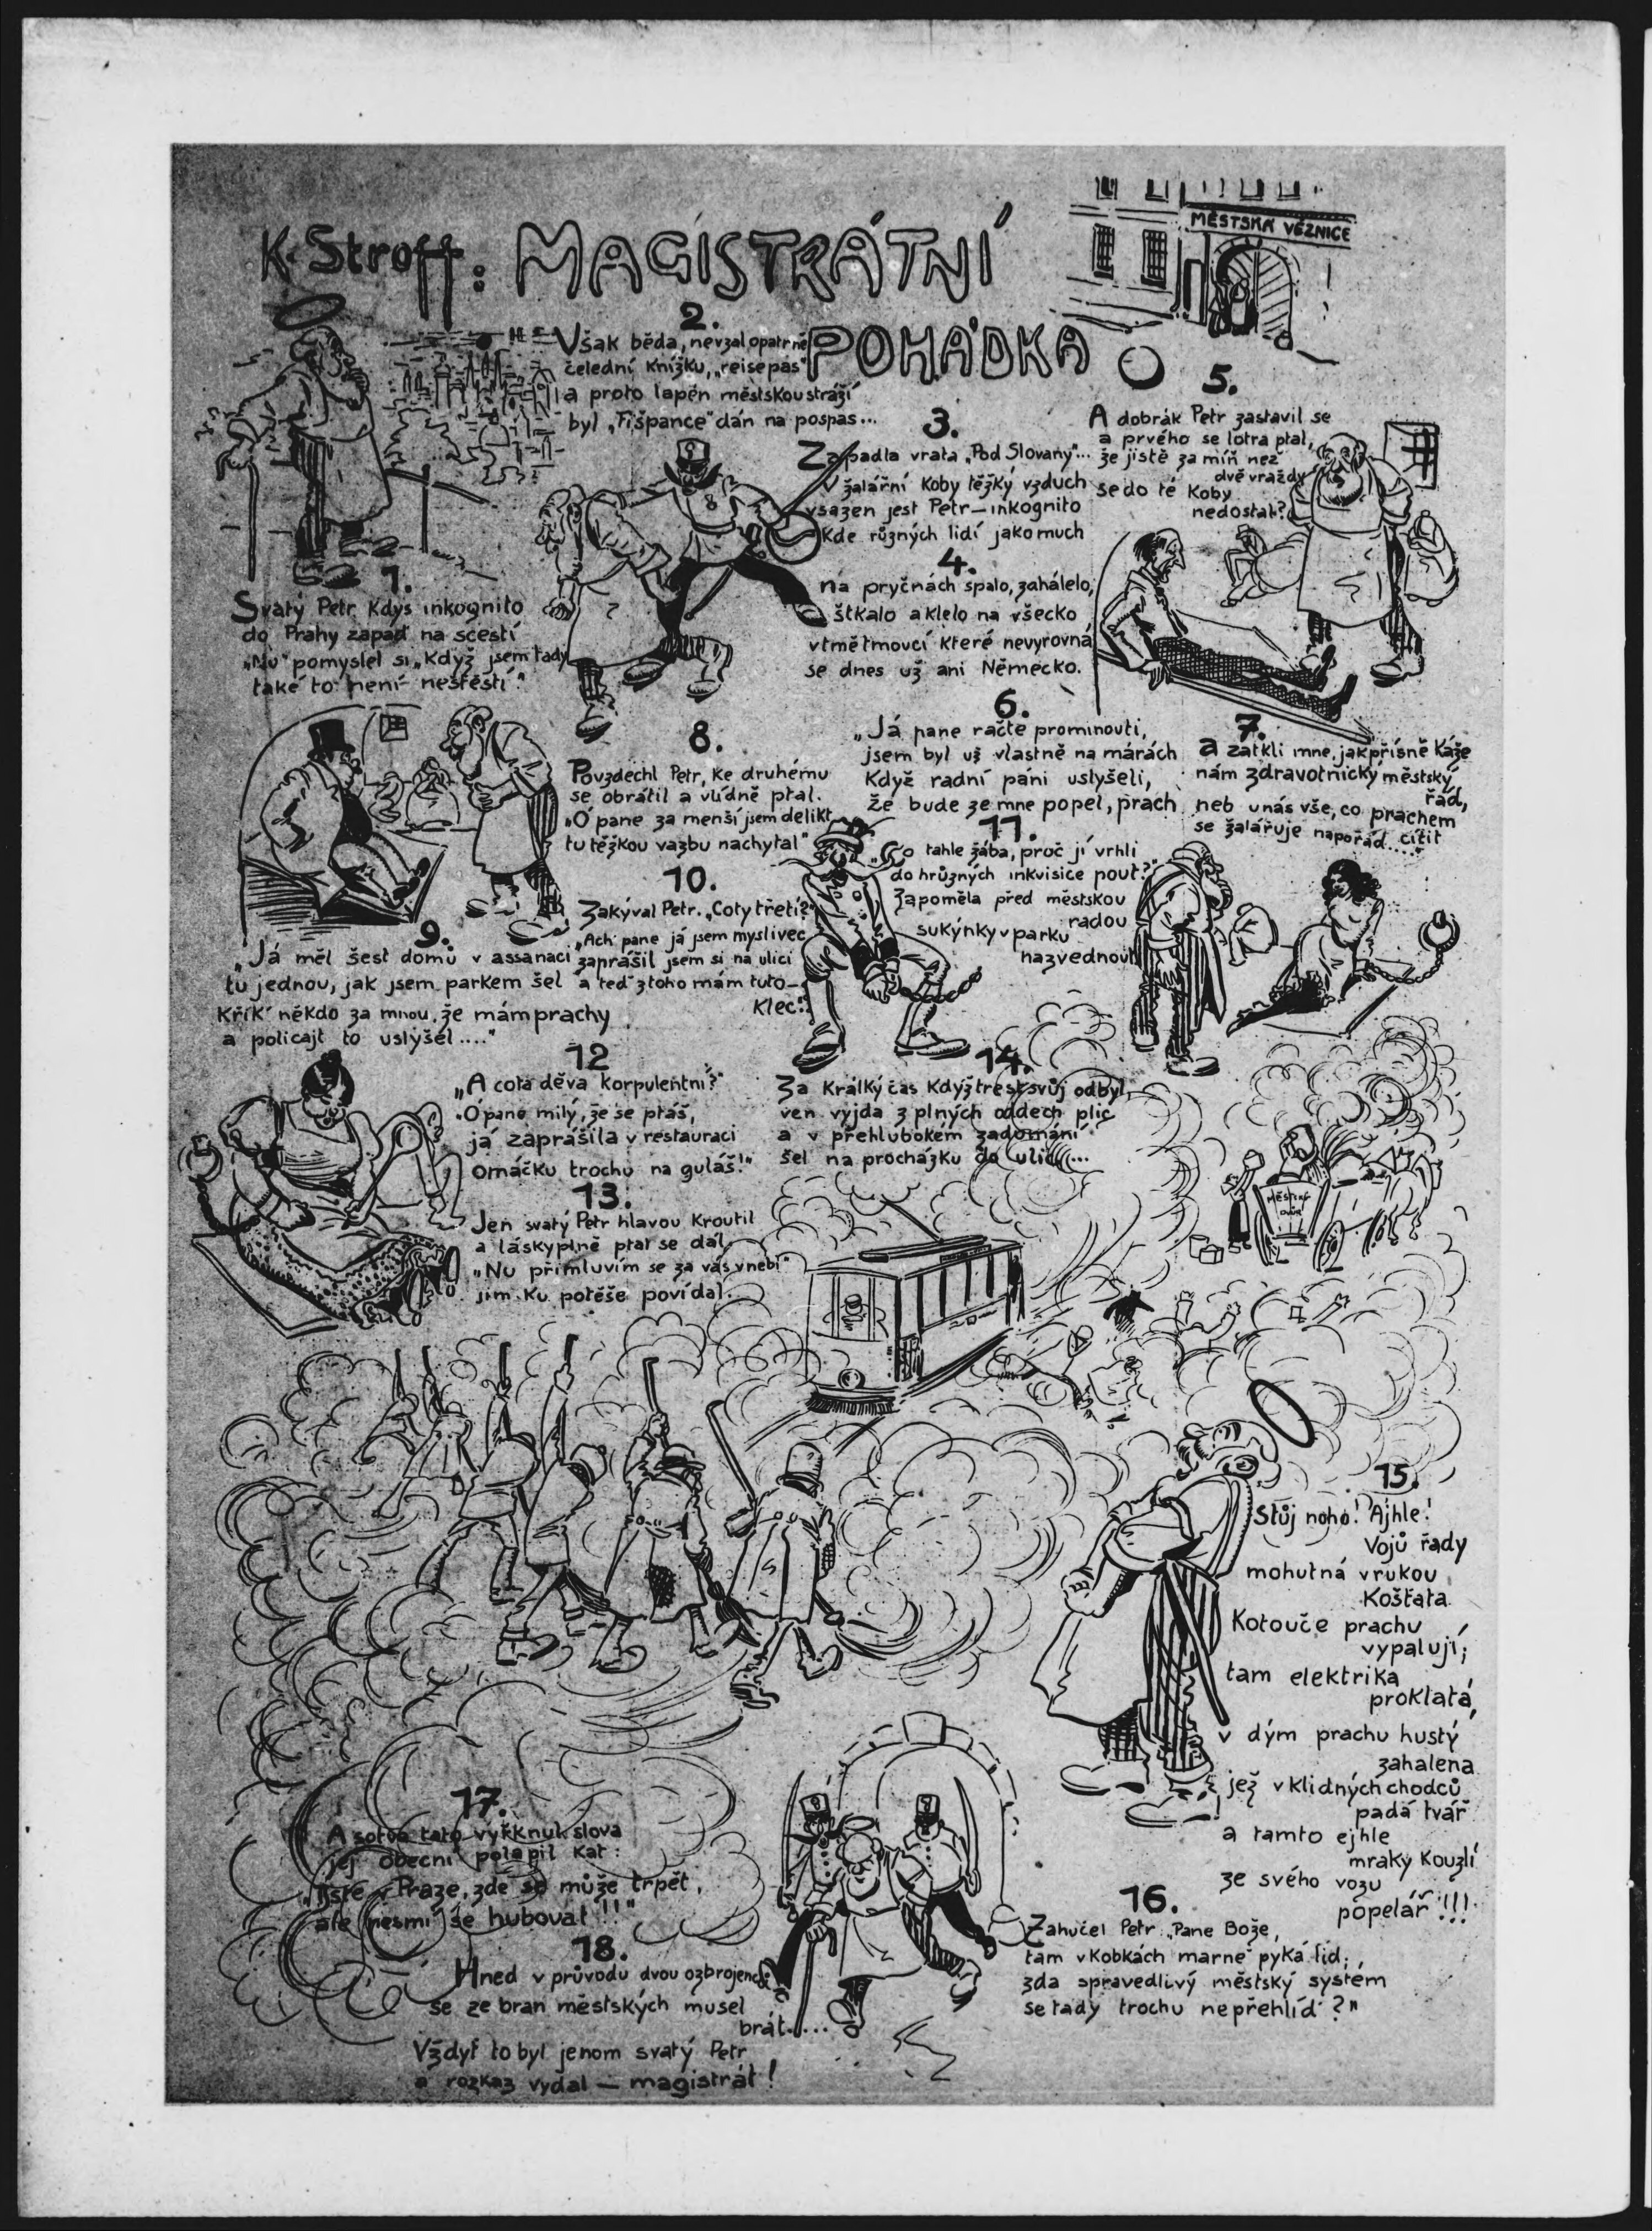 K. Stroff: MAGISTRÁTNÍ
POHÁDKA
MĚSTSKÁ VĚZNICE
1.
Svatý Petr kdys inkognito
do Prahy zapad' na scestí
„Nu" pomyslel si „Když jsem tady
také to není neštěstí."
2.
Však běda, nevzal opatrně
čelední knížku, „reisepas"
a proto lapen městskou stráží
byl „Fišpance" dán na pospas...
3.
Zapadla vrata „Pod Slovany"...
V žalářní koby těžký vzduch
vsazen jest Petr — inkognito
Kde různých lidí jako much
4.
na pryčnách spalo, zahálelo,
štkalo a klelo na všecko
vtmětmoucí které nevyrovná
se dnes už ani Německo.
5.
A dobrák Petr zastavil se
a prvého se lotra ptal,
že jistě za míň než
dvě vraždy
se do té koby
nedostal?
6.
„Já pane račte prominouti,
jsem byl už vlastně na márách
Když radní páni uslyšeli,
že bude ze mne popel, prach
7.
a zatkli mne, jak přísně káže
nám zdravotnický městský
řád,
neb u nás vše, co prachem
cítit
se žalářuje napořád....."
8.
Povzdechl Petr, ke druhému
se obrátil a vlídně ptal.
„O pane za menší jsem delikt
tu těžkou vazbu nachytal"
9.
„Já měl šest domů v assanaci
tu jednou, jak jsem parkem šel
křik' někdo za mnou, že mám prachy
a policajt to uslyšel...."
10.
Zakýval Petr. „Co ty třetí?"
„Ach pane já jsem myslivec
zaprášil jsem si na ulici
a teď z toho mám tuto—
klec".
11.
„Co tahle žába, proč jí vrhli
do hrůzných inkvisice pout?"
Zapoměla před městskou
radou
sukýnky v parku
nazvednout
12
„A co ta děva korpulentní?"
„O pane milý, že se ptáš,
já zaprášila v restauraci
omáčku trochu na guláš!"
13.
Jen svatý Petr hlavou kroutil
a láskyplně ptal se dál.
„Nu přimluvím se za vás v nebi"
jim ku potěše povídal.
14.
Za krátký čas když trest svůj odbyl,
ven vyjda z plných oddech plic
a v přehlubokém zadumání
šel na procházku do ulic...
MĚSTSKÝ
DVŮR
15.
Stůj noho! Ajhle!
Vojů řady
mohutná v rukou
košťata
Kotouče prachu
vypalují;
tam elektrika
proklatá,
v dým prachu hustý
zahalena
jež v klidných chodců
padá tvář
a tamto ejhle
mraky kouzlí
ze svého vozu
popelář!!!
16.
Zahučel Petr „Pane Bože,
tam v kobkách marně pyká lid;
zda spravedlivý městský systém
se tady trochu nepřehlíd'?"
17.
A sotva tato vyřknul slova
jej obecní polapil kat:
„Jste v Praze, zde se může trpět,
ale nesmí se hubovat!!"
18.
Hned v průvodu dvou ozbrojenců
se ze bran městských musel
brát.....
Vždyť to byl jenom svatý Petr
a rozkaz vydal — magistrát!